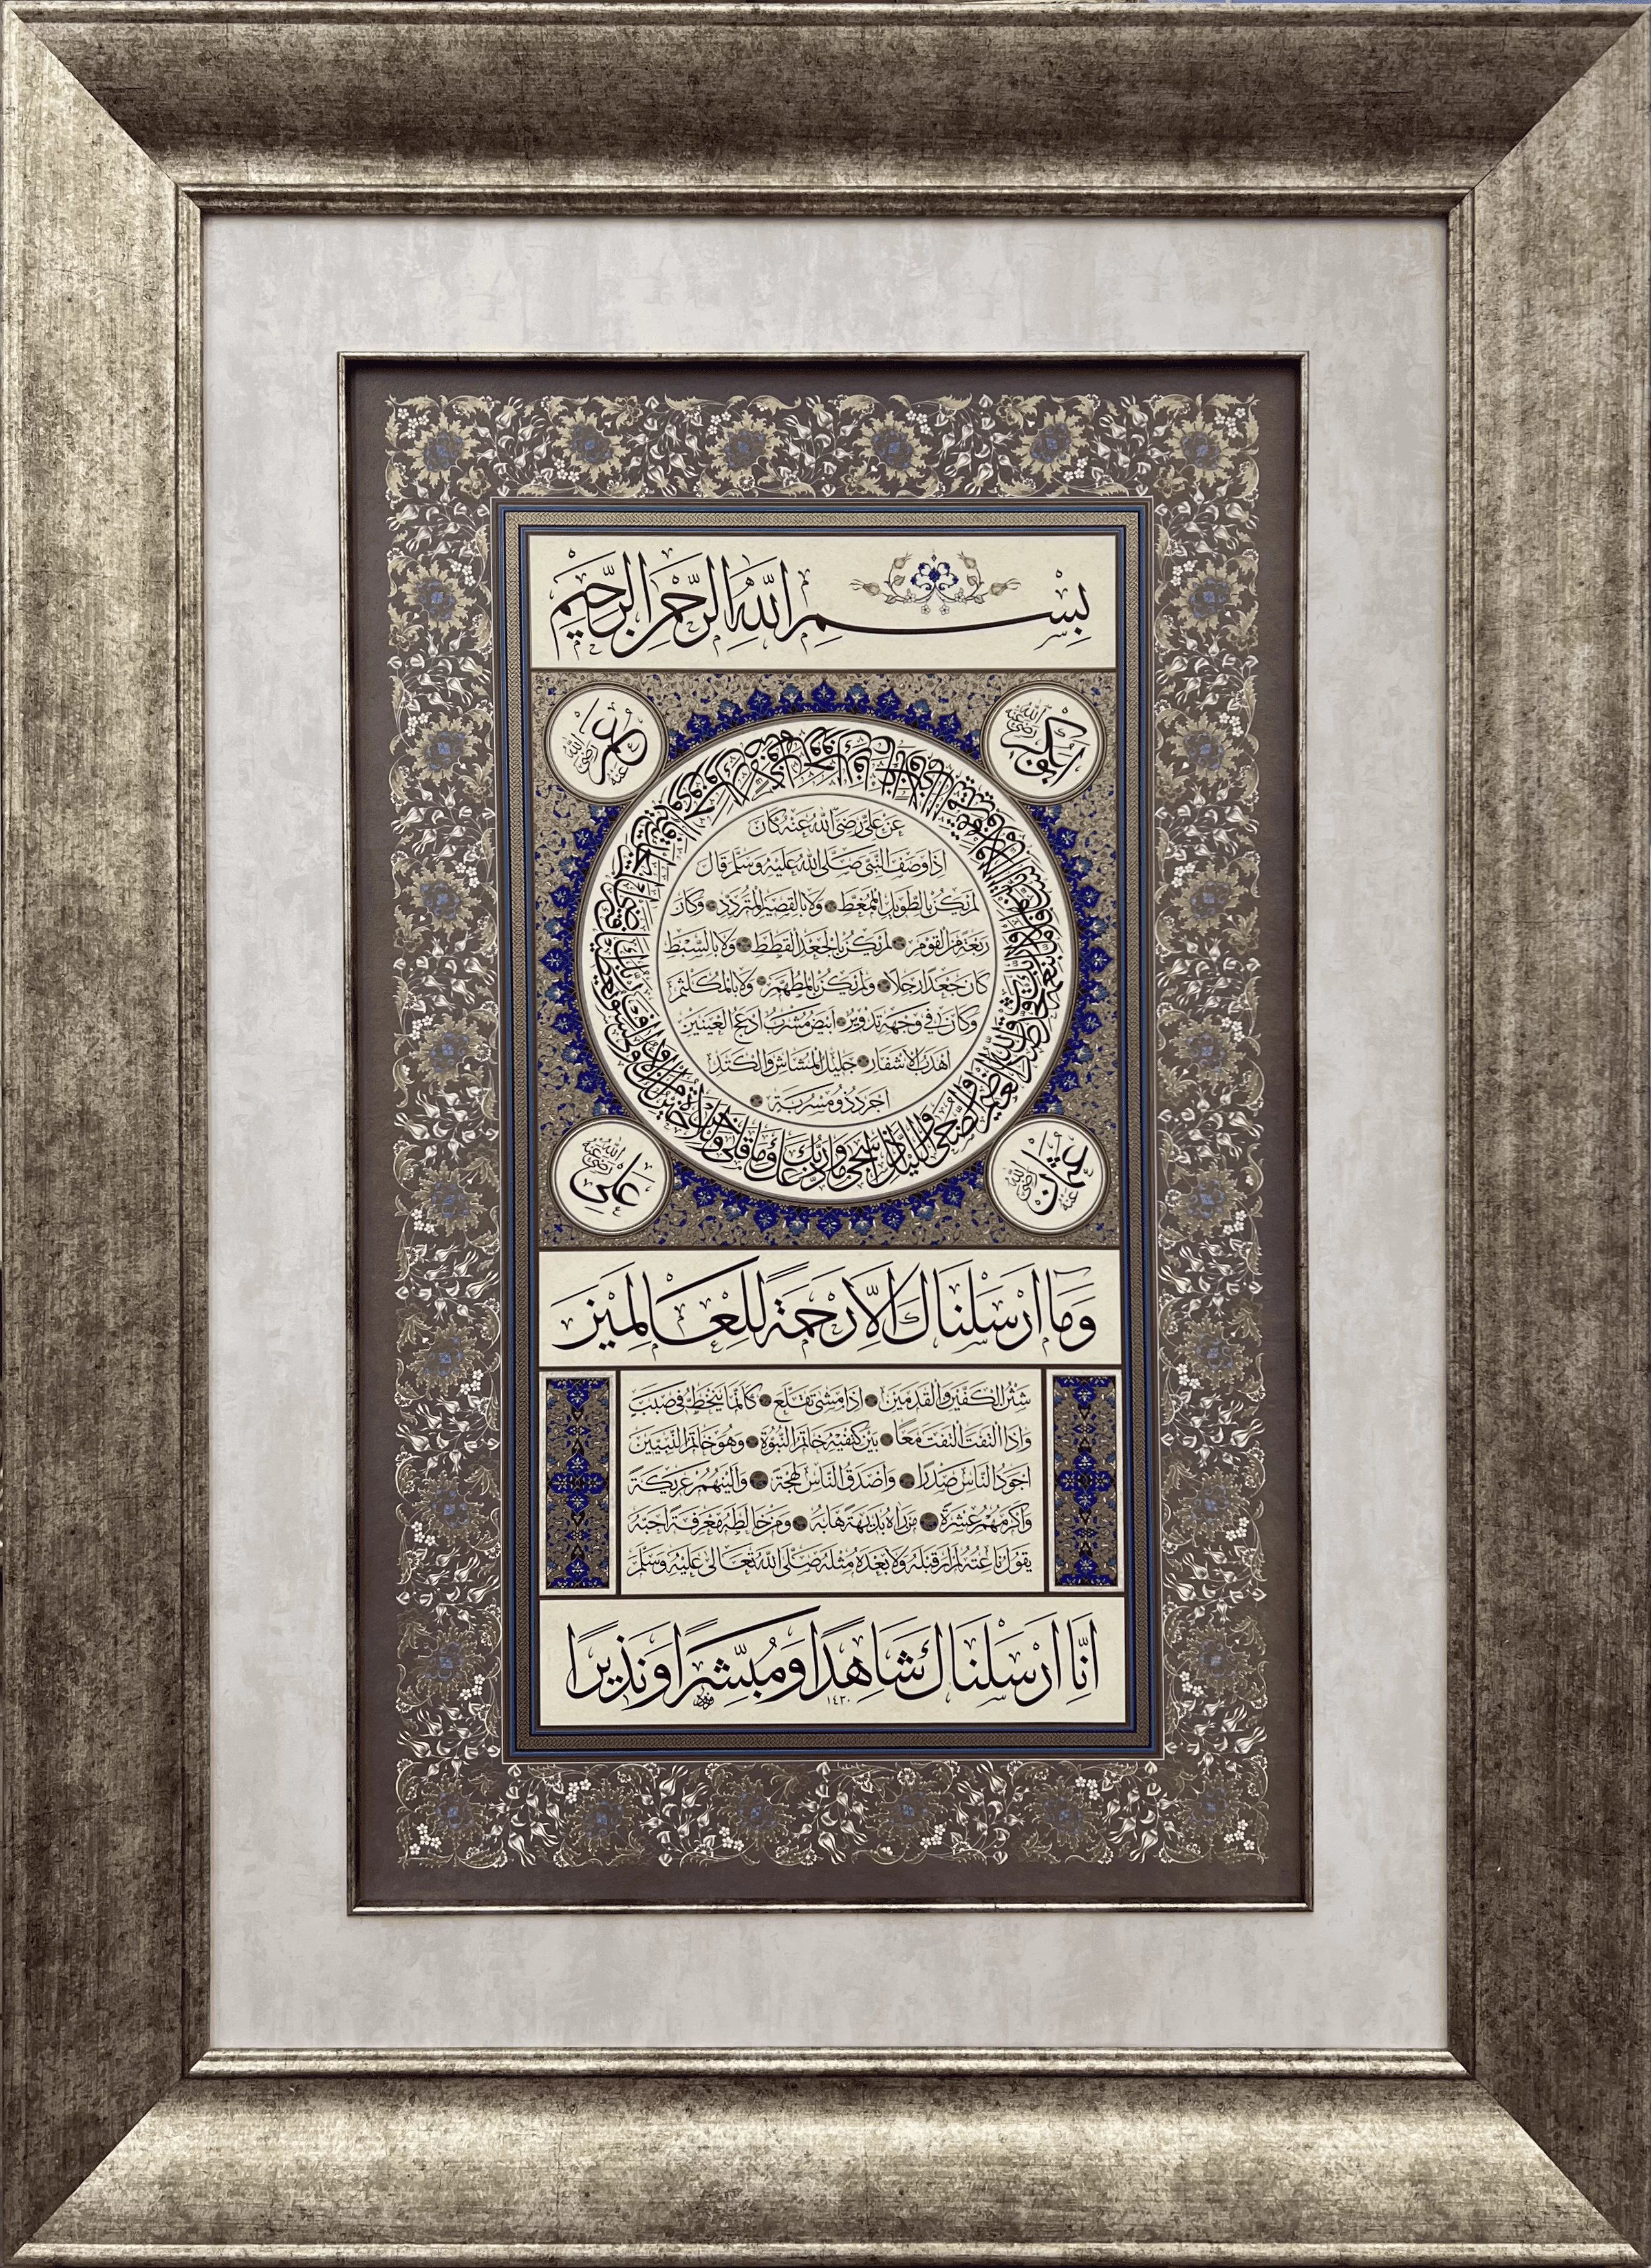 بِسْمِ اللّٰهِ الرَّحْمٰنِ الرَّحِيْمِ
ابوبكر رضى الله عنه
عمر رضى الله عنه
عَنْ عَلِىٍّ رَضِىَ اللّٰهُ عَنْهُ كَانَ
اِذَا وَصَفَ النَّبِىَّ صَلَّى اللّٰهُ عَلَيْهِ وَسَلَّمَ قَالَ
لَمْ يَكُنْ بِالطَّوِيلِ الْمُمَّغِطِ وَلَا بِالْقَصِيرِ الْمُتَرَدِّدِ وَكَانَ
رَبْعَةً مِنَ الْقَوْمِ لَمْ يَكُنْ بِالْجَعْدِ الْقَطَطِ وَلَا بِالسَّبْطِ
كَانَ جَعْدًا رَجِلًا وَلَمْ يَكُنْ بِالْمُطَهَّمِ وَلَا بِالْمُكَلْثَمِ
وَكَانَ فِى وَجْهِهِ تَدْوِيرٌ اَبْيَضُ مُشْرَبٌ اَدْعَجُ الْعَيْنَيْنِ
اَهْدَبُ الْاَشْفَارِ جَلِيلُ الْمُشَاشِ وَالْكَتَدِ
اَجْرَدُ ذُو مَسْرُبَةٍ
والضحى والليل اذا سجى ما ودعك ربك وما قلى
عثمان رضى الله عنه
على رضى الله عنه
وَمَا اَرْسَلْنَاكَ اِلَّا رَحْمَةً لِلْعَالَمِينَ
شَثْنُ الْكَفَّيْنِ وَالْقَدَمَيْنِ اِذَا مَشٰى تَقَلَّعَ كَاَنَّمَا يَنْحَطُّ فِى صَبَبٍ
وَاِذَا الْتَفَتَ الْتَفَتَ مَعًا بَيْنَ كَتِفَيْهِ خَاتَمُ النُّبُوَّةِ وَهُوَ خَاتَمُ النَّبِيِّينَ
اَجْوَدُ النَّاسِ صَدْرًا وَاَصْدَقُ النَّاسِ لَهْجَةً وَاَلْيَنُهُمْ عَرِيكَةً
وَاَكْرَمُهُمْ عِشْرَةً مَنْ رَاٰهُ بَدِيهَةً هَابَهُ وَمَنْ خَالَطَهُ مَعْرِفَةً اَحَبَّهُ
يَقُولُ نَاعِتُهُ لَمْ اَرَ قَبْلَهُ وَلَا بَعْدَهُ مِثْلَهُ صَلَّى اللّٰهُ تَعَالٰى عَلَيْهِ وَسَلَّمَ
اِنَّا اَرْسَلْنَاكَ شَاهِدًا وَمُبَشِّرًا وَنَذِيرًا
١٤٣٠